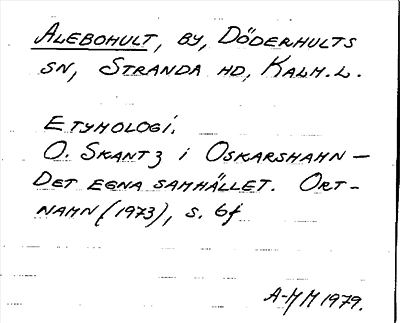 ALEBOHULT, BY, DÖDERHULTS
SN, STRANDA HD, KALM. L.
ETYMOLOGI.
O. SKANTZ i OSKARSHAMN –
DET EGNA SAMHÄLLET. ORT-
NAMN (1973), S. 6f
A-MM 1979.